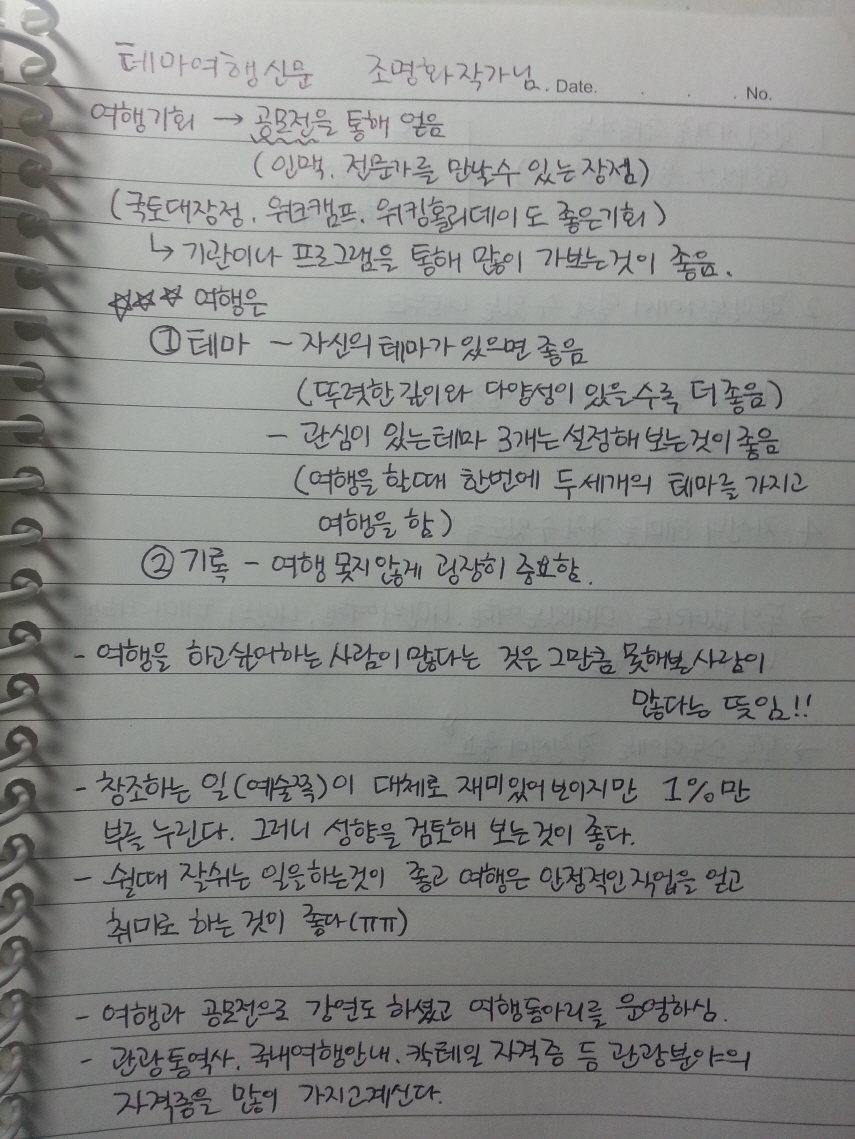 테마여행신문 조명화작가님. Date. . . . No.
여행기회 → 공모전을 통해 얻음
(인맥, 전문가를 만날수 있는 장점)
(국토대장정, 워크캠프, 워킹홀리데이도 좋은기회)
↳ 기관이나 프로그램을 통해 많이 가보는것이 좋음.
☆☆☆ 여행은
① 테마 - 자신의 테마가 있으면 좋음
(뚜렷한 깊이와 다양성이 있을수록 더 좋음)
- 관심이 있는테마 3개는 설정해 보는것이 좋음
(여행을 할때 한번에 두세개의 테마를 가지고
여행을 함)
② 기록 - 여행 못지않게 굉장히 중요함.
- 여행을 하고싶어하는 사람이 많다는 것은 그만큼 못해본 사람이
많다는 뜻임!!
- 창조하는 일(예술쪽)이 대체로 재미있어 보이지만 1%만
부를 누린다. 그러니 성향을 검토해 보는것이 좋다.
- 쉴때 잘쉬는 일을하는것이 좋고 여행은 안정적인 직업을 얻고
취미로 하는 것이 좋다(ㅠㅠ)
- 여행과 공모전으로 강연도 하셨고 여행동아리를 운영하심.
- 관광통역사, 국내여행안내, 칵테일 자격증 등 관광분야의
자격증을 많이 가지고계신다.